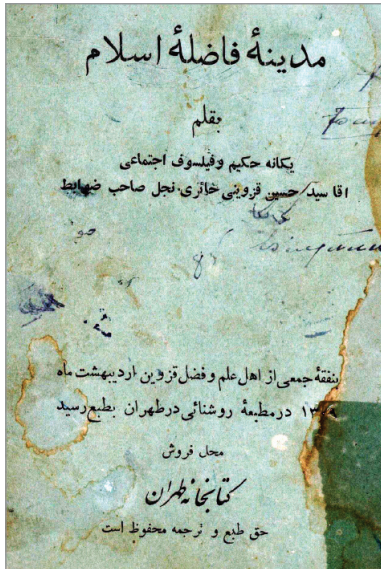 مدینهٔ فاضلهٔ اسلام
بقلم
یگانه حکیم وفیلسوف اجتماعی
اقا سید حسین قزوینی حائری. نجل صاحب ضوابط
بنفقهٔ جمعی از اهل علم و فضل قزوین اردیبهشت ماه
در مطبعهٔ روشنائی در طهران بطبع رسید
محل فروش
کتابخانه طهران
حق طبع و ترجمه محفوظ است